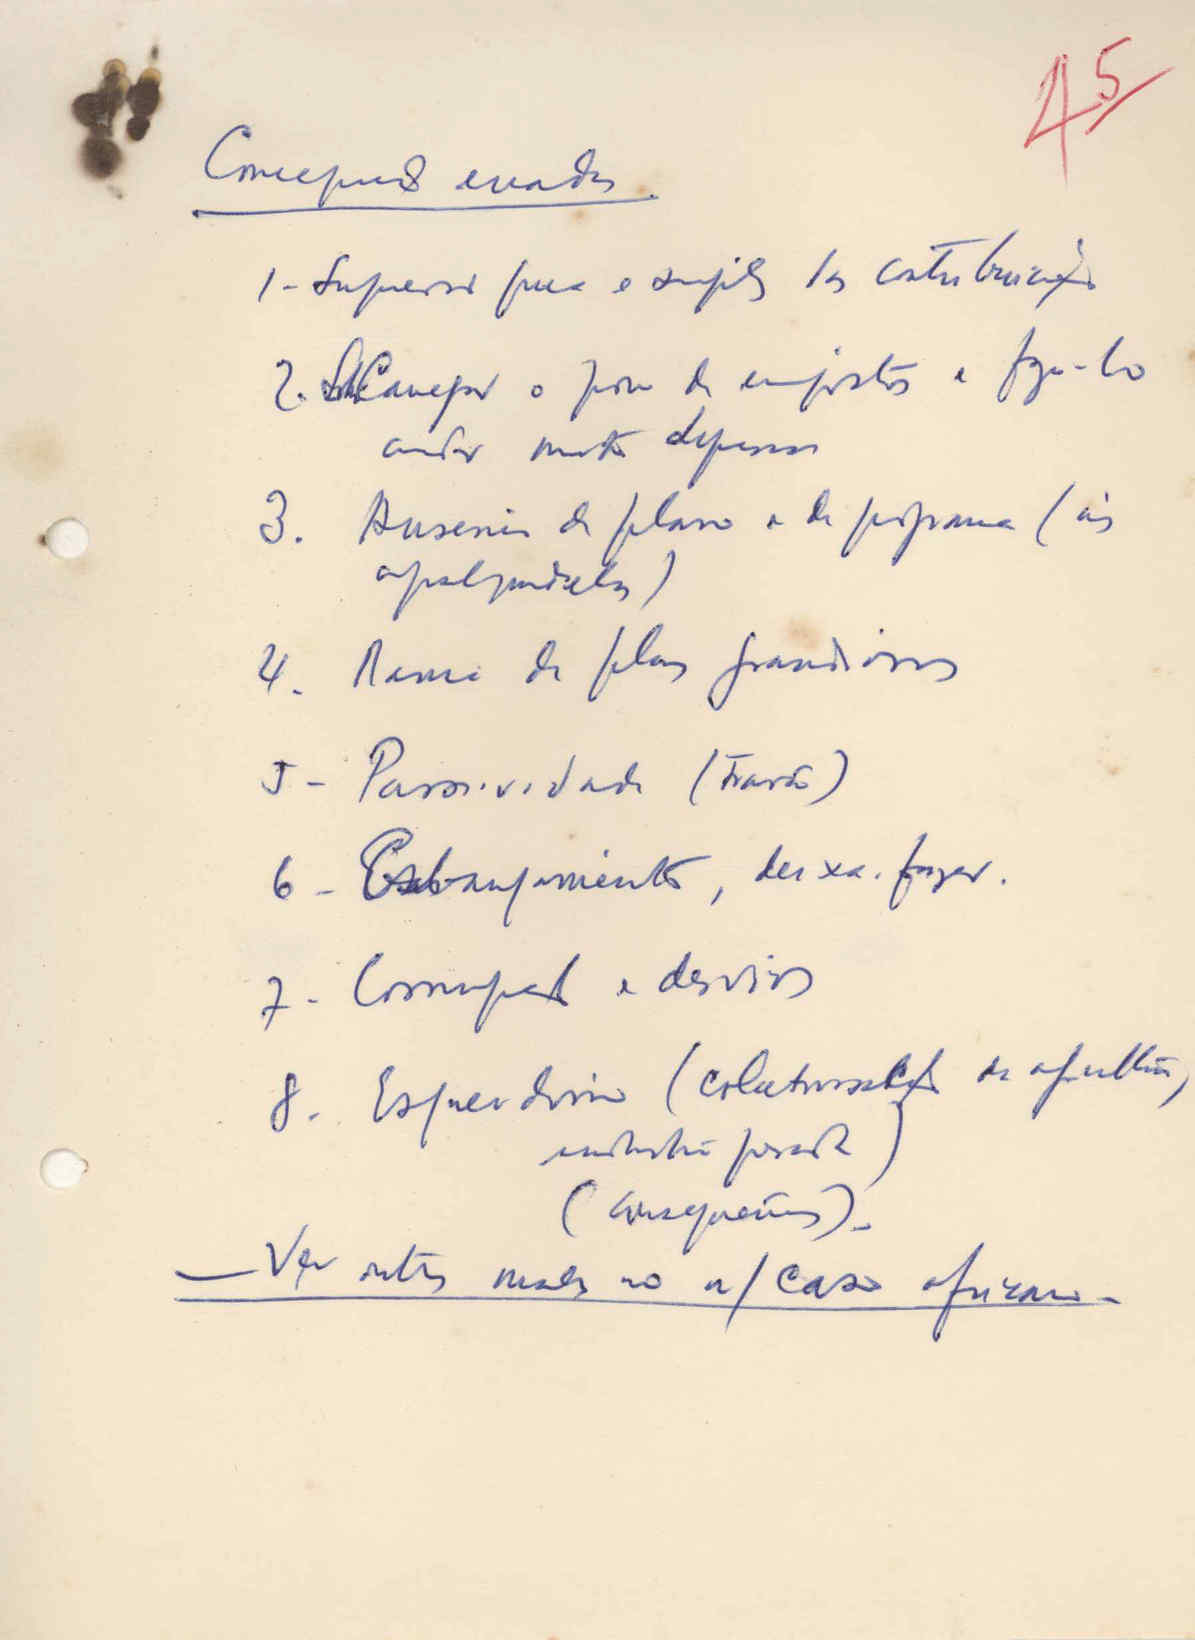 45
Concepções erradas.
1- Supressão pura e simples das contribuições
2. Carregar o povo de impostos e fazê-lo
andar muito depressa
3. Ausência de plano e de programa (às
apalpadelas)
4. Mania de planos grandiosos
5- Passividade (travão)
6- Esbanjamento, deixa-fazer.
7- Corrupção e desvios
8. Esquerdismo (colectivização da agricultura,
indústria pesada)
(consequências).
— Ver outros males no n/ caso africano -